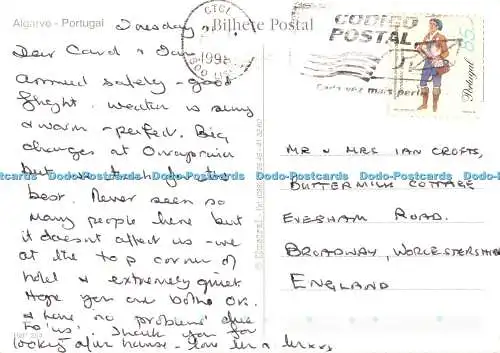 Algarve - Portugal
Bilhete Postal
Tuesday
Dear Carol & Ian
Arrived safely - good
flight. weather is sunny
& warm - perfect. Big
changes at
but we think for the
best. Never seen so
many people here but
it doesn't affect us - we
at the top corner of
hotel & extremely quiet.
Hope you are both OK.
& have no problems due
to 'us'. Thank you for
looking after house - love
CTCI
1995
CÓDIGO
POSTAL
Cada vez mais perto
85
Portugal
MR & MRS IAN CROFTS,
BUTTERMILK COTTAGE
EVESHAM ROAD.
BROADWAY, WORCESTERSHIRE
ENGLAND
Dodo-Postcards Dodo-Postcards Dodo-Postcards Dodo-Postcards Dodo-Postcards Dodo-Postcards